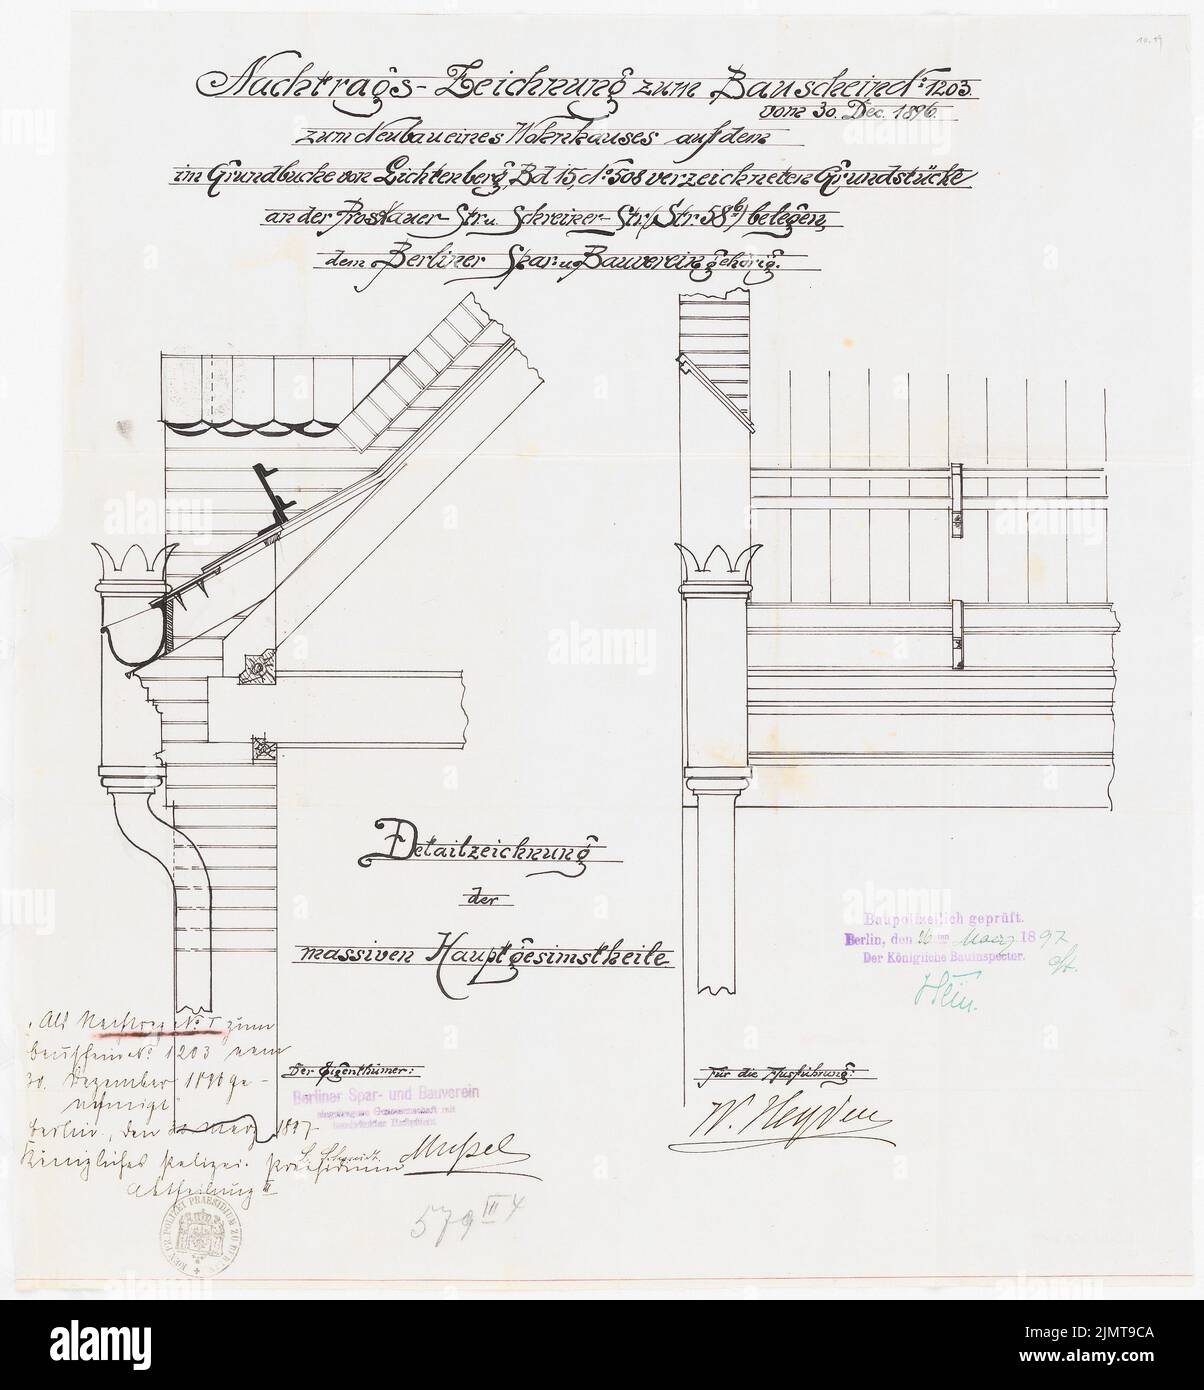 10.19
Nachtrags-Zeichnung zum Bauschein No: 1203.
vom 30. Dec. 1896.
zum Neubau eines Wohnhauses auf dem
im Grundbuche von Lichtenberg, Bd. 15, No: 508 verzeichneten Grundstücke
an der Proskauer- Str. u. Schreiner- Str. (Str. 58b) belegen,
dem Berliner Spar. u. Bauverein gehörig.
Detailzeichnung
der
massiven Hauptgesimstheile.
Baupolizeilich geprüft.
Berlin, den 26ten Maerz 1897
Der Königliche Bauinspector.
Als Nachtrag No I zum
Bauschein No 1203 vom
30. Dezember 1896 ge-
nehmigt
Berlin, den 30 März 1897
Königliches Polizei-Praesidium
Abtheilung III
Der Eigenthümer:
Berliner Spar- und Bauverein
eingetragene Genossenschaft mit
beschränkter Haftpflicht
Für die Ausführung:
W. Heyden
579 III
KOEN. PR. POLIZEI PRAESIDIUM ZU BERLIN
alamy
Image ID: 2JMT9CA
www.alamy.com